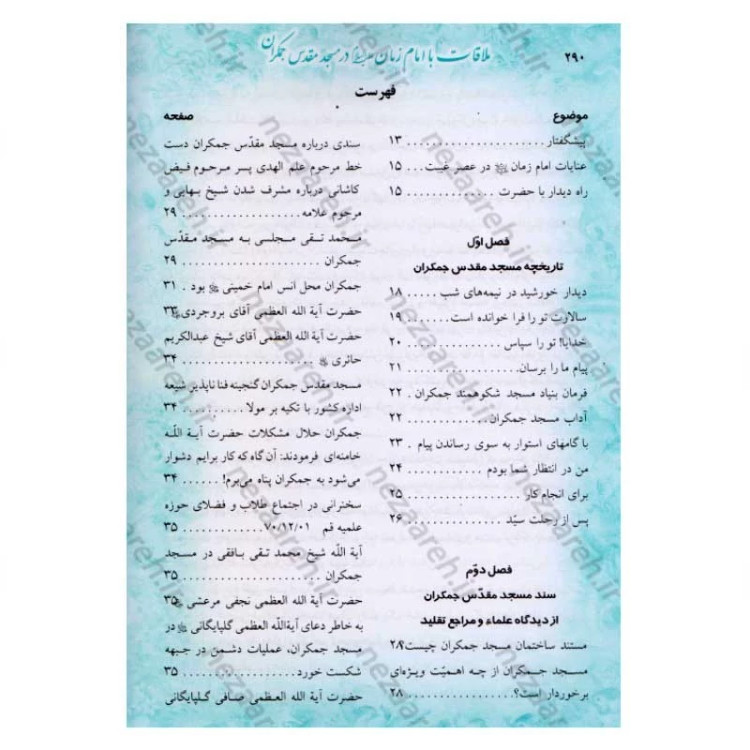 ۲۹۰
ملاقات با امام زمان در مسجد مقدس جمکران
فهرست
موضوع
صفحه
پیشگفتار ...................... ۱۳
عنایات امام زمان در عصر غیبت ... ۱۵
راه دیدار با حضرت ............. ۱۵
فصل اوّل
تاریخچه مسجد مقدس جمکران
دیدار خورشید در نیمه‌های شب ..... ۱۸
سالارت تو را فرا خوانده است ...... ۱۹
خدایا! تو را سپاس ............. ۲۰
پیام ما را برسان ............... ۲۱
فرمان بنیاد مسجد شکوهمند جمکران . ۲۲
آداب مسجد جمکران ............. ۲۲
با گامهای استوار به سوی رساندن پیام . ۲۳
من در انتظار شما بودم ........... ۲۴
برای انجام کار ................. ۲۵
پس از رحلت سیّد ............... ۲۶
فصل دوّم
سند مسجد مقدّس جمکران
از دیدگاه علماء و مراجع تقلید
مستند ساختمان مسجد جمکران چیست؟ ۲۸
مسجد جمکران از چه اهمیّت ویژه‌ای
برخوردار است؟ ................. ۲۸
سندی درباره مسجد مقدّس جمکران دست
خط مرحوم علم الهدی پسر مرحوم فیض
کاشانی درباره مشرف شدن شیخ بهایی و
مرحوم علامه ................... ۲۹
محمد تقی مجلسی به مسجد مقدّس
جمکران ....................... ۲۹
جمکران محل انس امام خمینی بود . ۳۱
حضرت آیة الله العظمی آقای بروجردی ۳۳
حضرت آیة الله العظمی آقای شیخ عبدالکریم
حائری ....................... ۳۴
مسجد مقدس جمکران گنجینه فنا ناپذیر شیعه
اداره کشور با تکیه بر مولا ......... ۳۴
جمکران حلال مشکلات حضرت آیة اللّه
خامنه‌ای فرمودند: آن گاه که کار برایم دشوار
می‌شود به جمکران پناه می‌برم! ...... ۳۴
سخنرانی در اجتماع طلاب و فضلای حوزه
علمیه قم ۷۰/۱۲/۰۱ ............ ۳۵
آیة اللّه شیخ محمد تقی بافقی در مسجد
جمکران ....................... ۳۵
حضرت آیة الله العظمی نجفی مرعشی ۳۵
به خاطر دعای آیة‌اللّه العظمی گلپایگانی در
مسجد جمکران، عملیات دشمن در جبهه
شکست خورد ................... ۳۵
حضرت آیة الله العظمی صافی گلپایگانی
nezaareh.ir